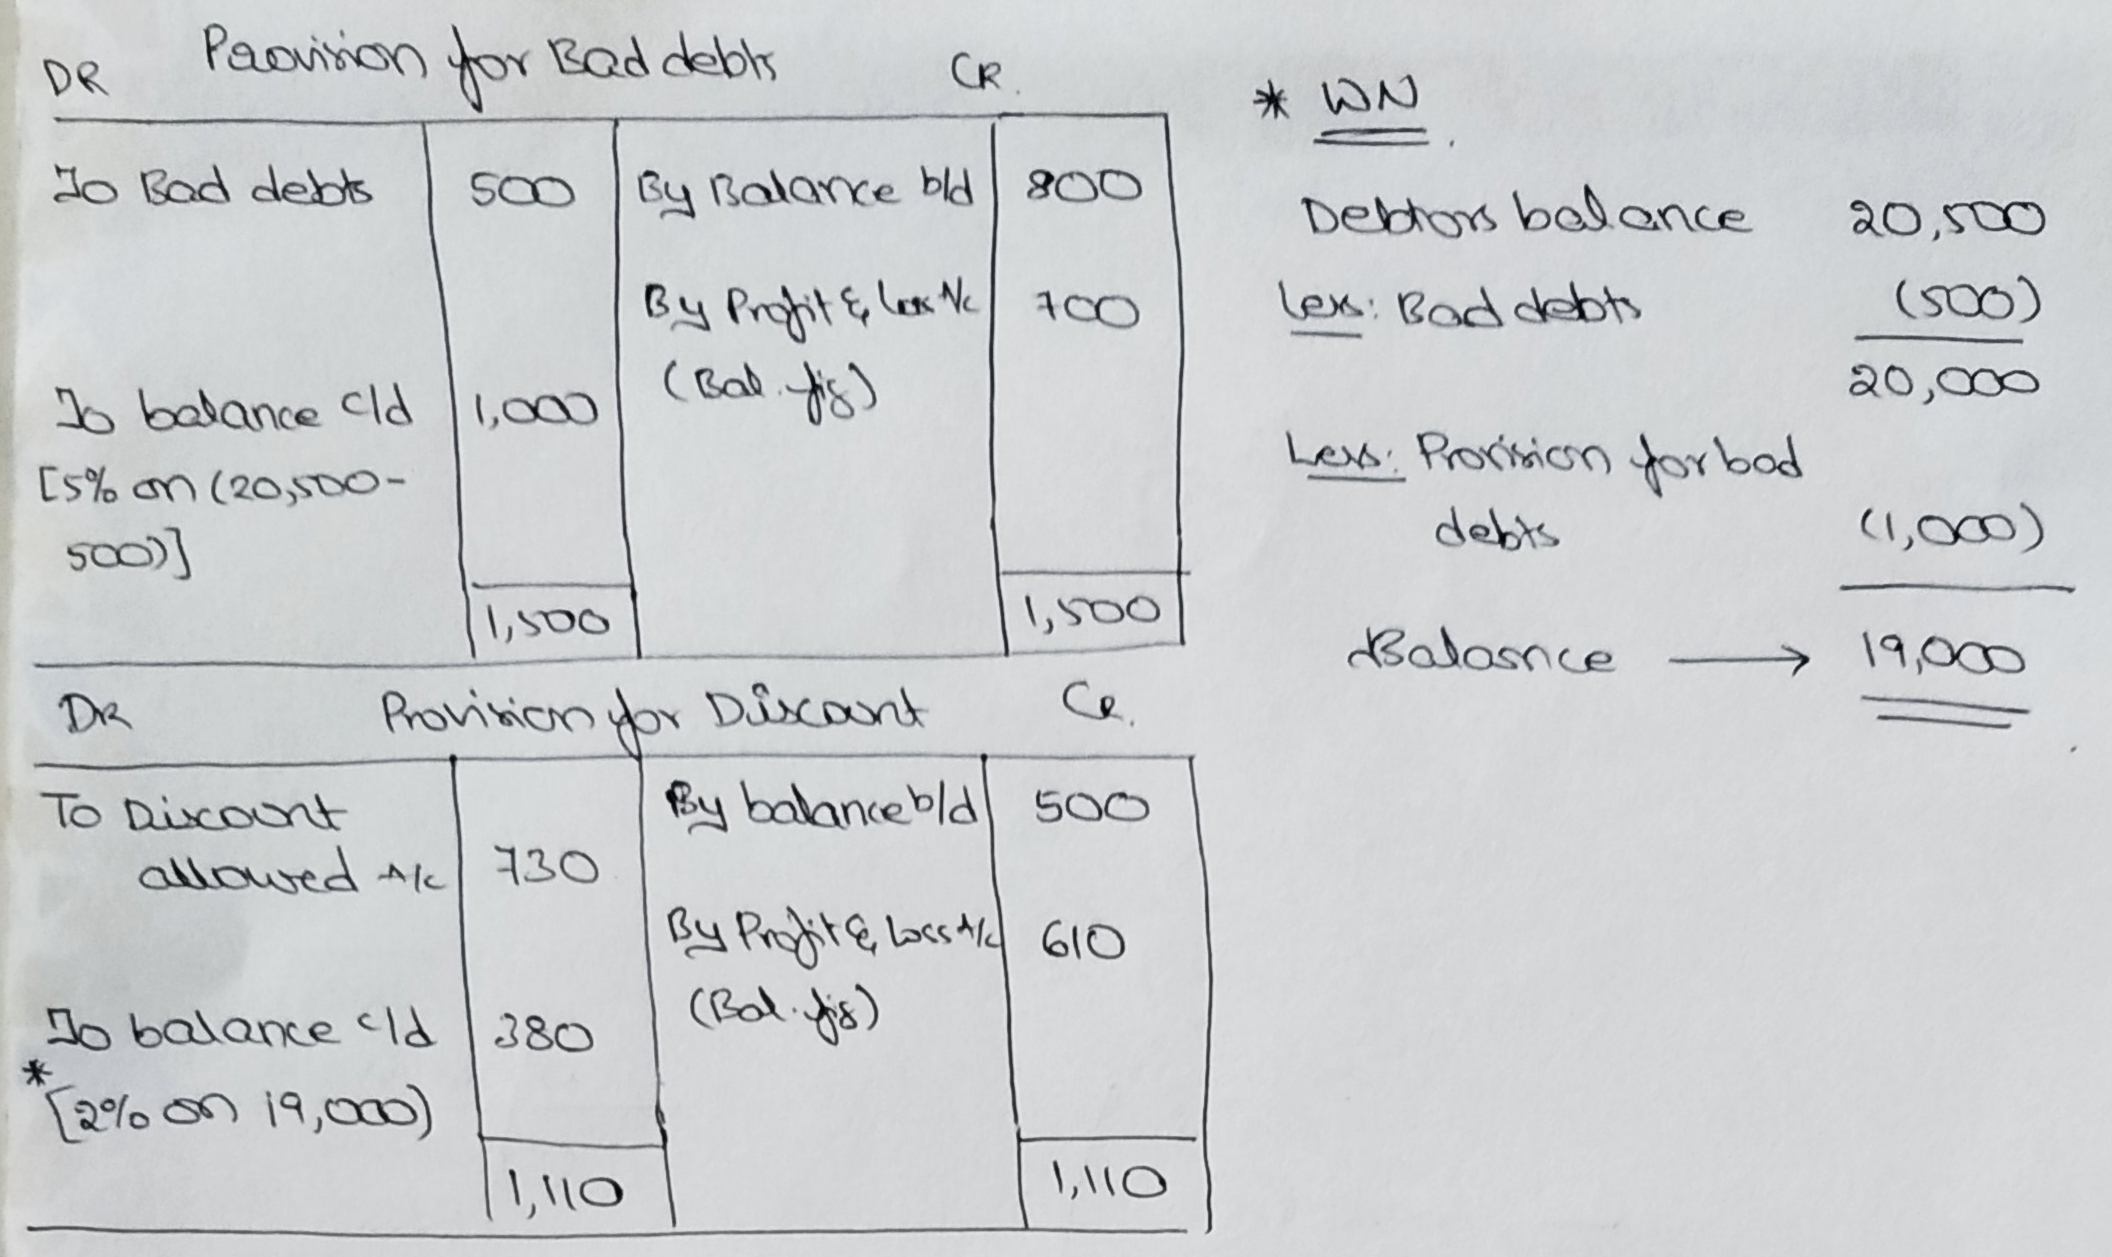 DR Provision for Bad debts CR.
To Bad debts 500 By Balance b/d 800
By Profit & Loss A/c 700
(Bal. fig)
To balance c/d 1,000
[5% on (20,500-
500)]
1,500 1,500
DR Provision for Discount Cr.
To Discount By balance b/d 500
allowed A/c 730
By Profit & Loss A/c 610
(Bal. fig)
To balance c/d 380
*
[2% on 19,000)
1,110 1,110
* WN
Debtors balance 20,500
Less: Bad debts (500)
20,000
Less: Provision for bad
debts (1,000)
Balance → 19,000